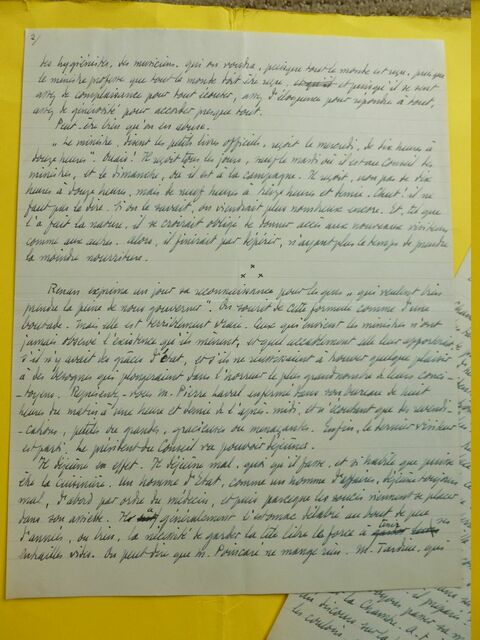 2/
des hygiénistes, des musiciens, qui on voudra, puisque tout le monde est reçu, puisque
le ministre professe que tout le monde doit être reçu, et puisqu'il se sent
assez de complaisance pour tout écouter, assez d'éloquence pour répondre à tout,
assez de générosité pour accorder presque tout.
Peut-être bien qu'on en abuse.
"Le ministre, disent les petits livres officiels, reçoit le mercredi, de dix heures à
douze heures". Ouais! Il reçoit tous les jours, sauf le mardi où il est au Conseil des
ministres, et le dimanche, où il est à la campagne. Il reçoit, non pas de dix
heures à douze heures, mais de neuf heures à treize heures et demie. Chut! il ne
faut pas le dire. Si on le savait, on viendrait plus nombreux encore. Et, tel que
l'a fait la nature, il se croirait obligé de donner accès aux nouveaux visiteurs
comme aux autres. Alors, il finirait par dépérir, n'ayant plus le temps de prendre
la moindre nourriture.
x
x x
Renan exprima un jour sa reconnaissance pour les gens "qui veulent bien
prendre la peine de nous gouverner". On sourit de cette formule comme d'une
boutade. Mais elle est terriblement vraie. Ceux qui envient les ministres n'ont
jamais observé l'existence qu'ils mènent, et quel accablement elle leur apporterait
s'il n'y avait des grâces d'état, et s'ils ne réussissaient à trouver quelque plaisir
à des besognes qui plongeraient dans l'horreur le plus grand nombre de leurs conci-
toyens. Représentez-vous M. Pierre Laval enfermé dans son bureau de huit
heures du matin à une heure et demie de l'après-midi, et n'écoutant que des revendi-
cations, petites ou grandes, gracieuses ou menaçantes. Enfin, le dernier visiteur
est parti. Le président du Conseil va pouvoir déjeuner.
Il déjeune en effet. Il déjeune mal, quoi qu'il fasse, et si habile que puisse
être la cuisinière. Un homme d'état, comme un homme d'affaires, déjeune toujours
mal, d'abord par ordre du médecin, et puis parce que les soucis viennent se placer
dans son assiette. Il a généralement l'estomac délabré au bout de peu
d'années, ou bien, la nécessité de garder la tête libre le force à tenir ses
entrailles vides. On peut dire que M. Poincaré ne mange rien. M. Tardieu, qui